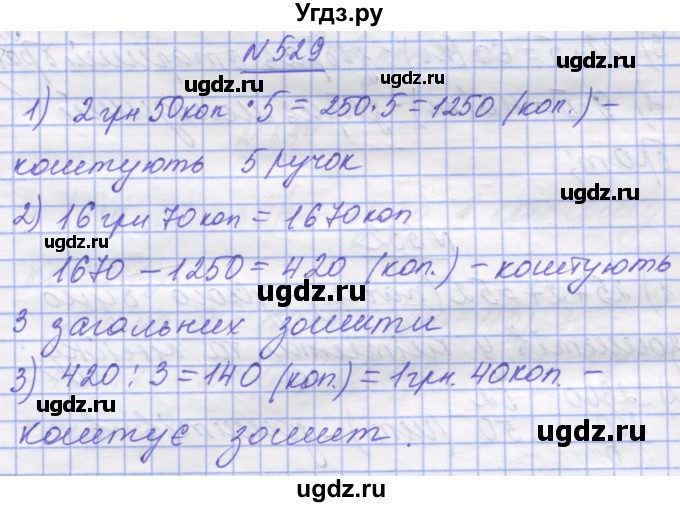 Угдз.ру
N 529
ugdz.ru ugdz.ru
1) 2 грн 50 коп · 5 = 250 · 5 = 1250 (коп.) –
ugdz.ru
коштують 5 ручок
ugdz.ru ugdz.ru
2) 16 грн 70 коп = 1670 коп
ugdz.ru
1670 – 1250 = 420 (коп.) – коштують
ugdz.ru
3 загальних зошити
ugdz.ru
3) 420 : 3 = 140 (коп.) = 1 грн. 40 коп. –
ugdz.ru
ugdz.ru
коштує зошит.
ugdz.ru
ugdz.ru